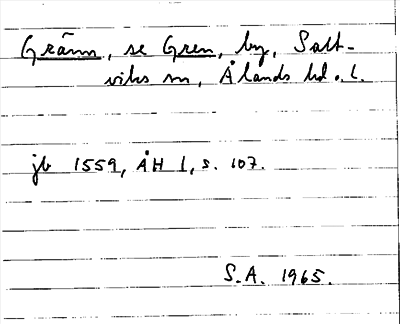 Gränn, se Gren, by, Salt-
viks sn, Ålands hd o. l.
jb 1559, ÅH 1, s. 107.
S.A. 1965.